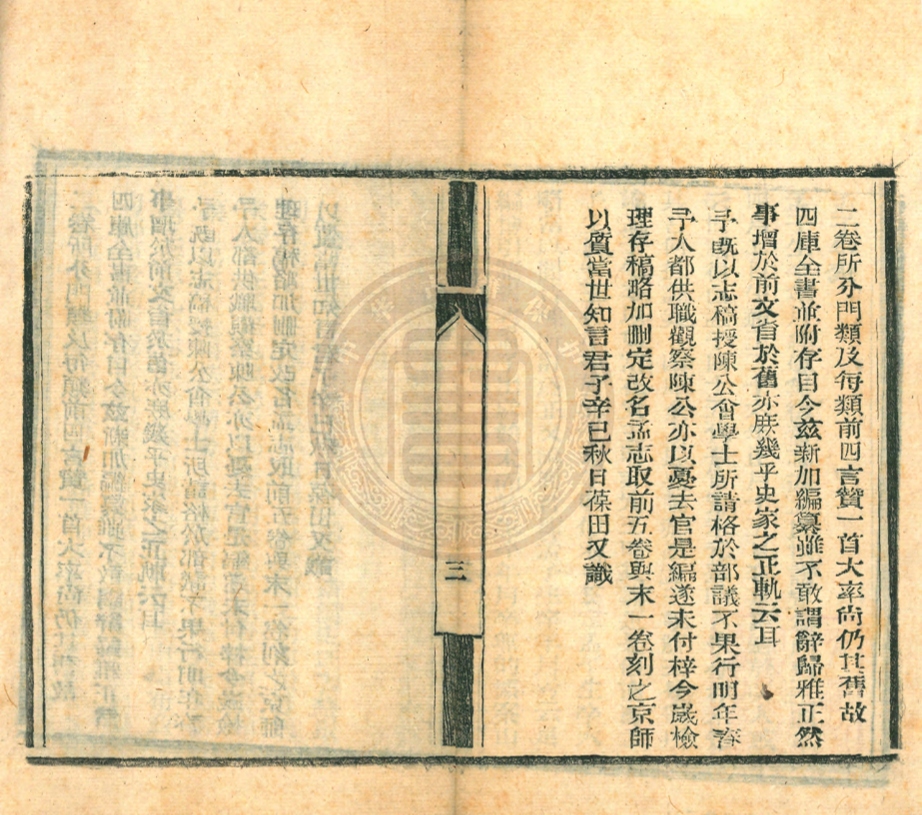 二卷所分門類及每類前四言贊一首大率尙仍其舊故
四庫全書並附存目今茲新加編纂雖不敢謂辭歸雅正然
事增於前文省於舊亦庶幾乎史家之正軌云耳
予既以志稿授陳公會學士所請格於部議不果行明年春
予入都供職觀察陳公亦以憂去官是編遂未付梓今歲檢
理存稿略加刪定改名孟志取前五卷與末一卷刻之京師
以質當世知言君子辛巳秋日葆田又識
三